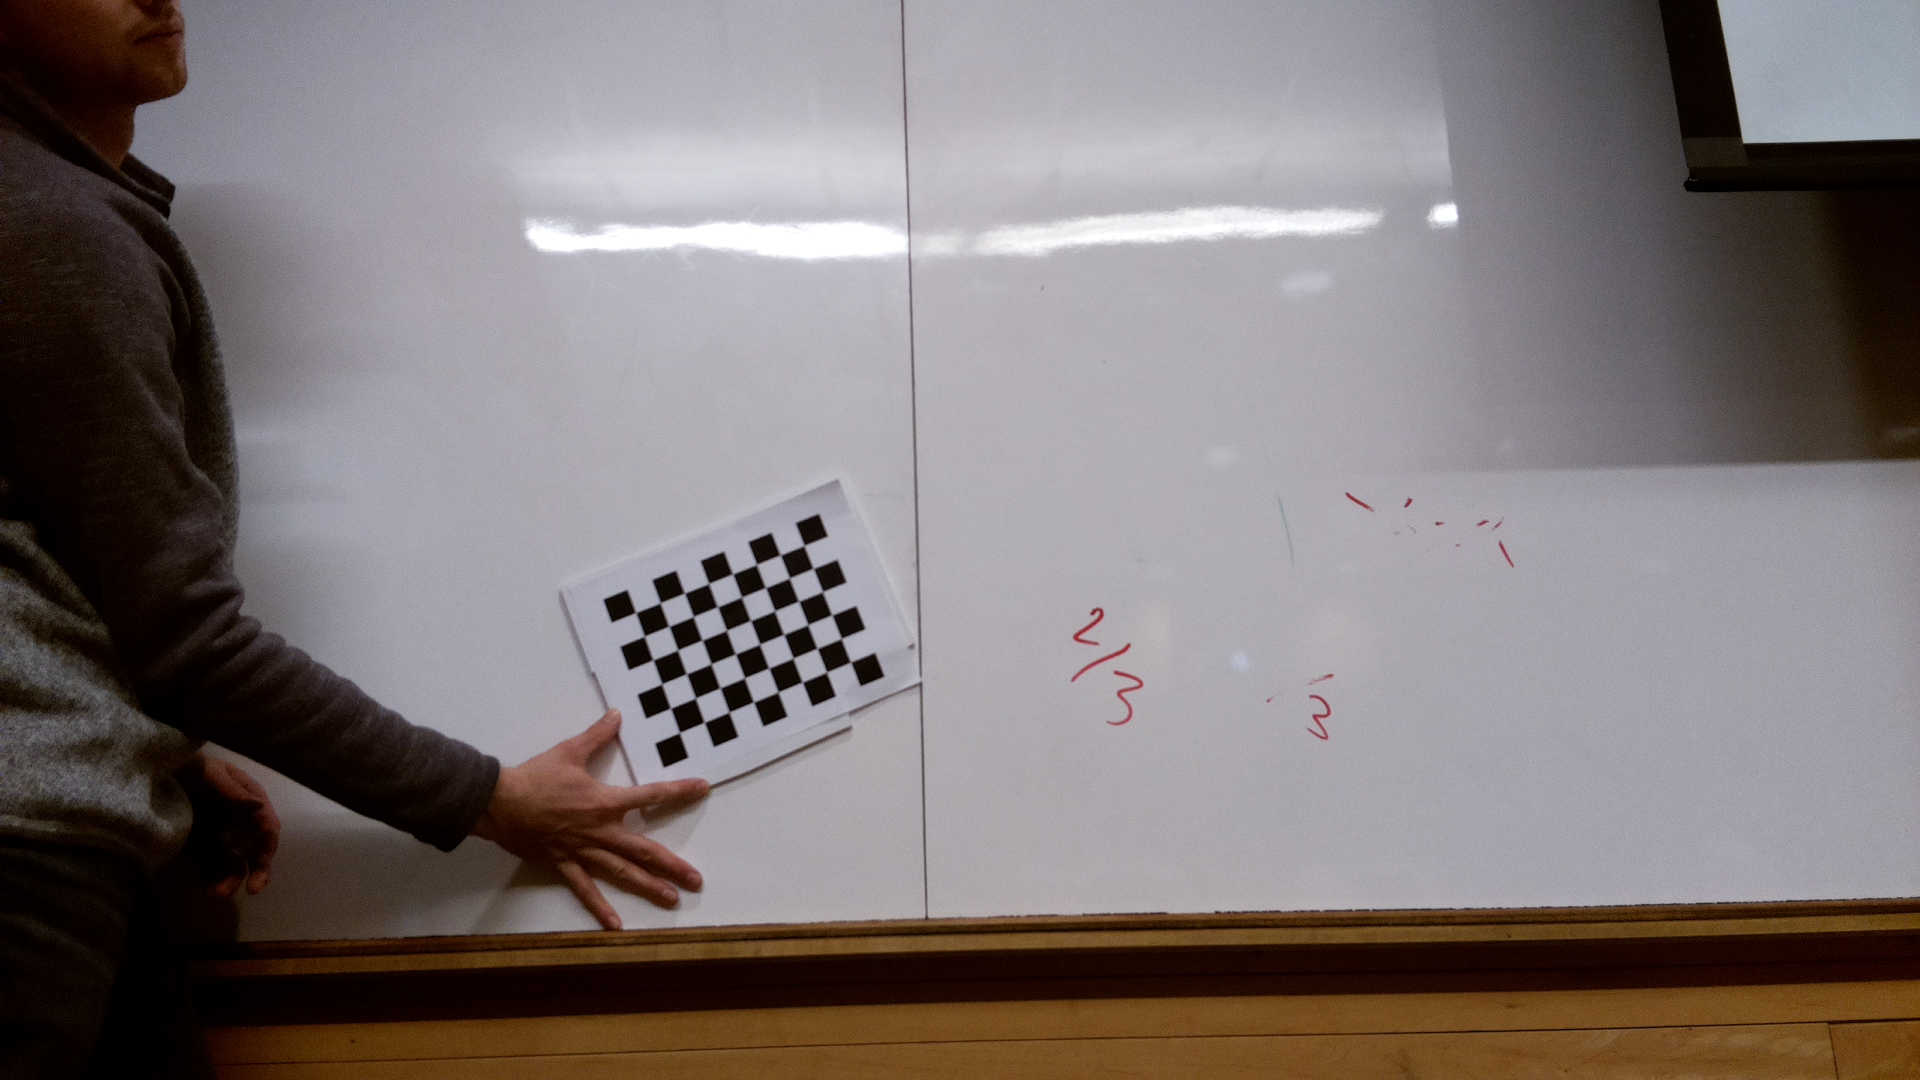 2/3
3